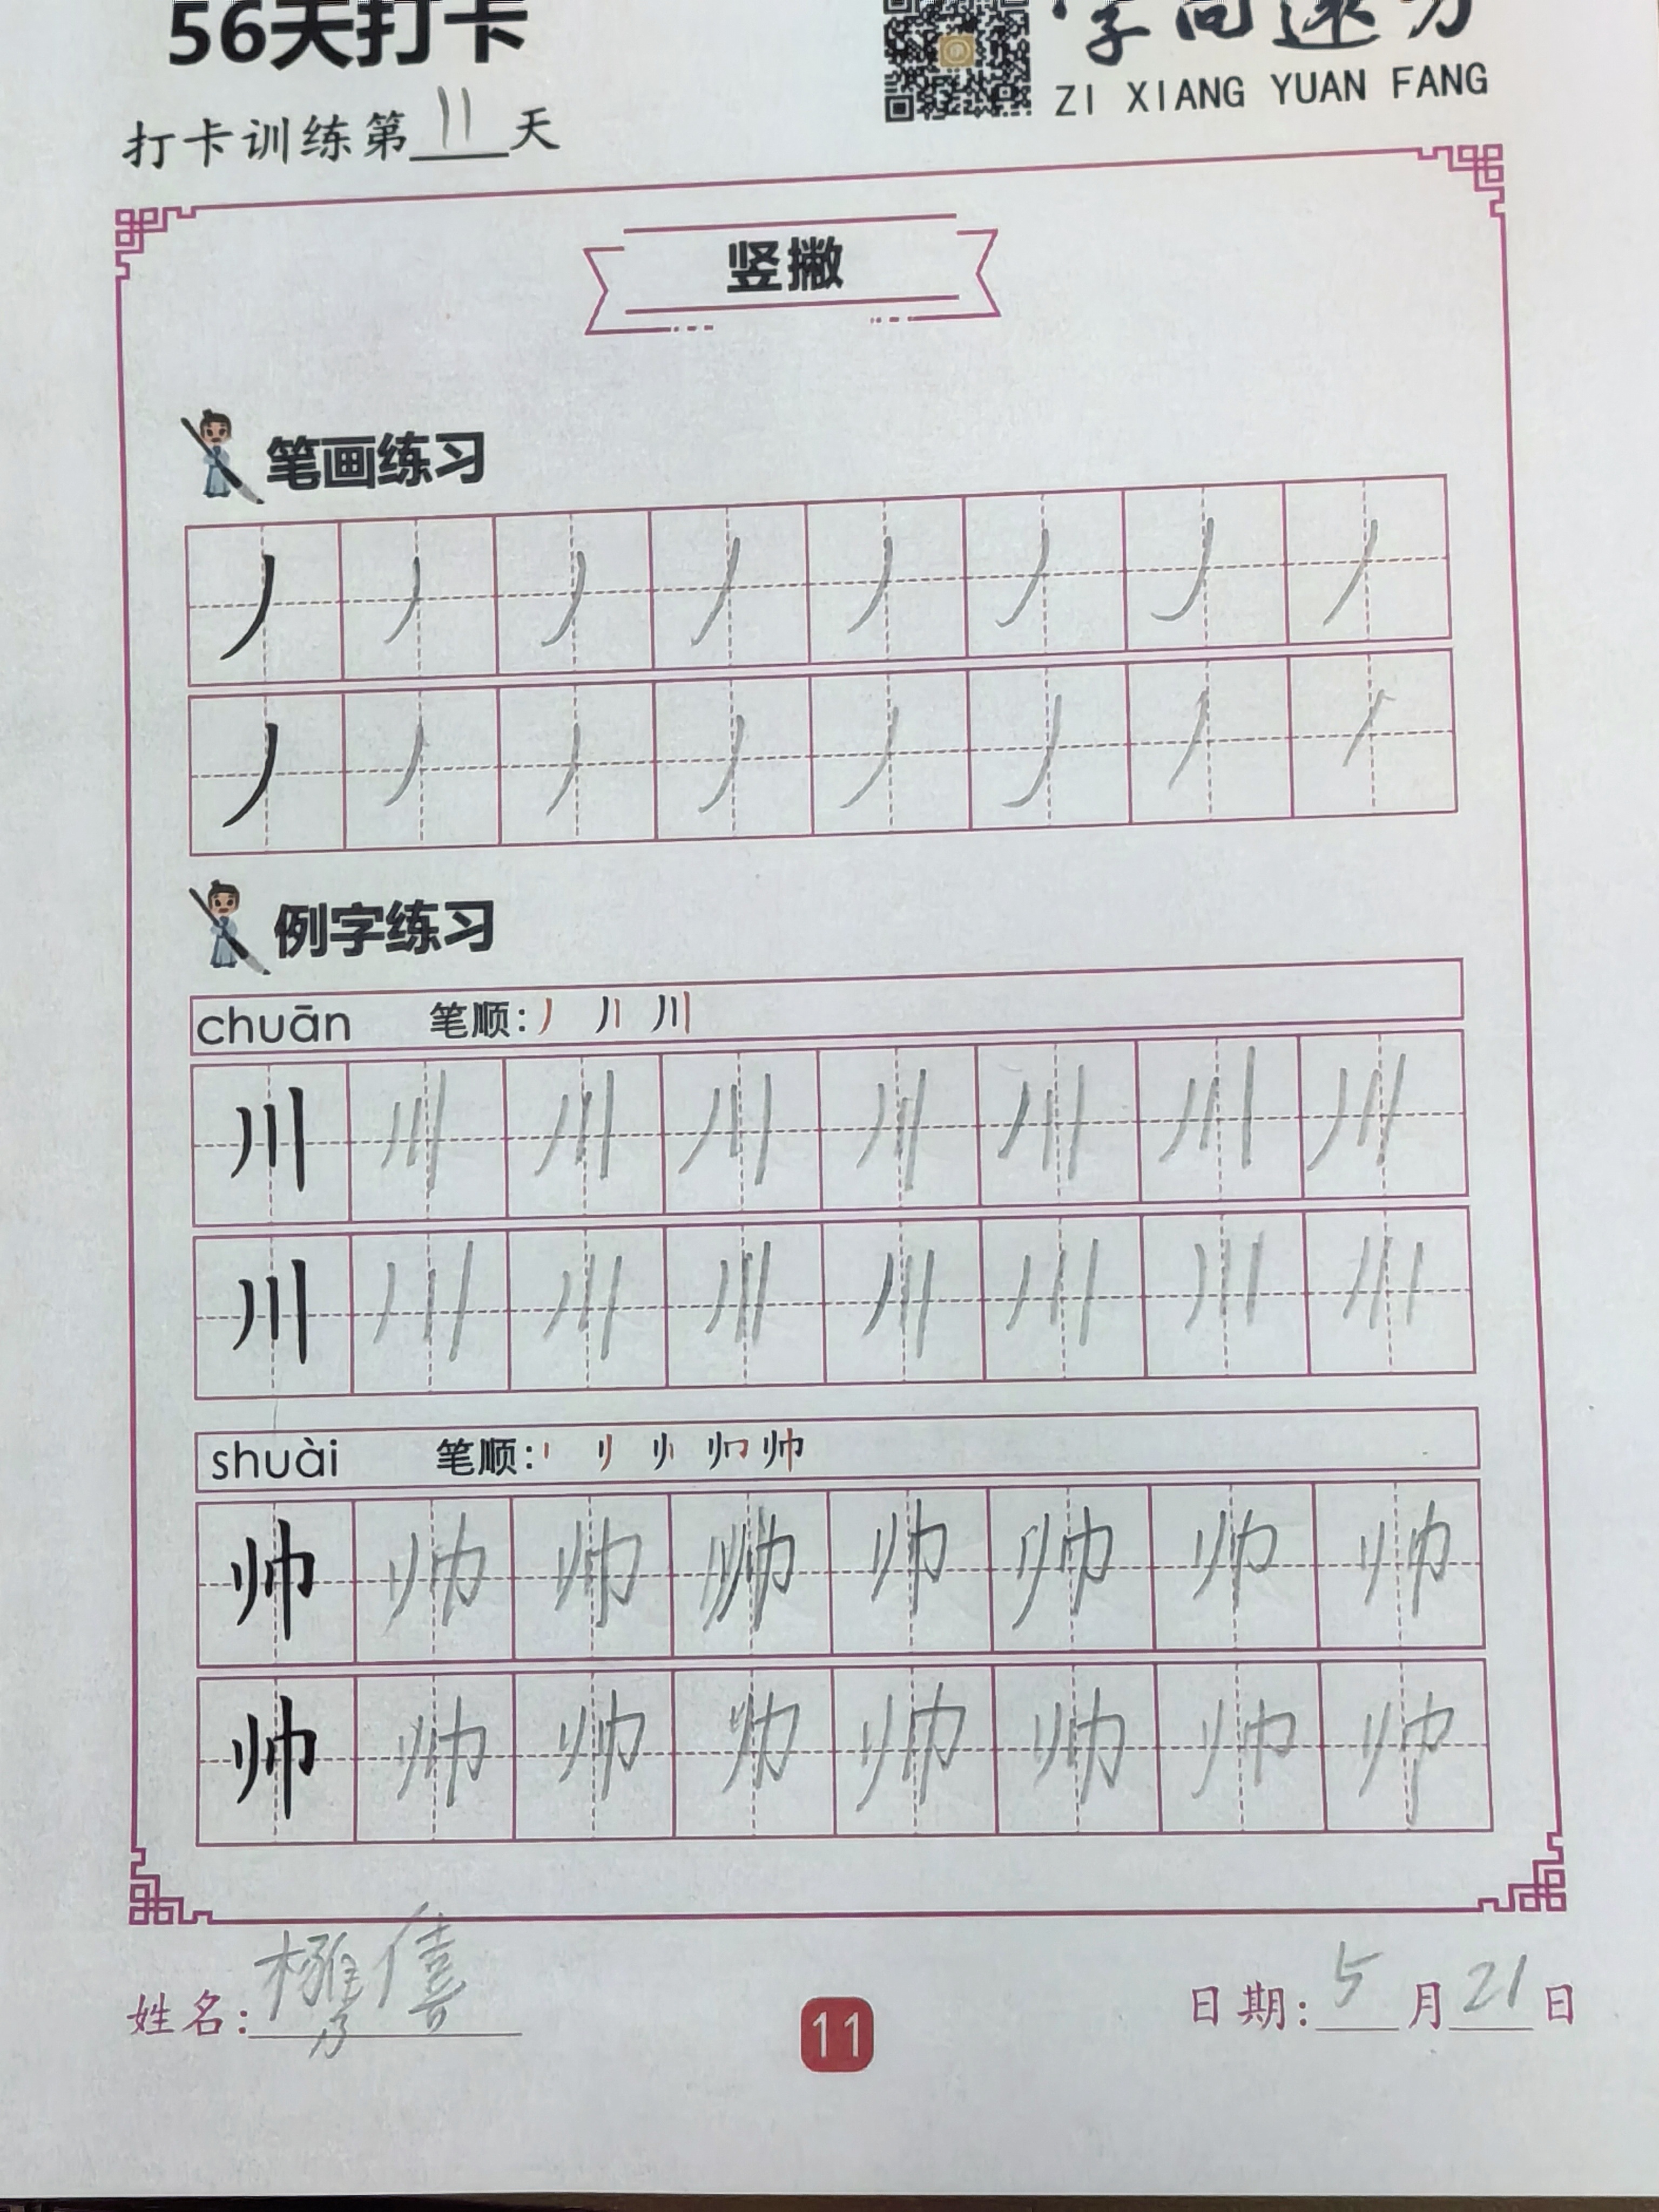 56天打卡
字向远方
ZI XIANG YUAN FANG
打卡训练第11天
竖撇
笔画练习
丿丿丿丿丿丿丿丿
丿丿丿丿丿丿丿丿
例字练习
chuān 笔顺: 丿 丿丨 川
川川川川川川川川
川川川川川川川川
shuài 笔顺:
帅帅帅帅帅帅帅帅
帅帅帅帅帅帅帅帅
姓名:
11
日期:5月21日